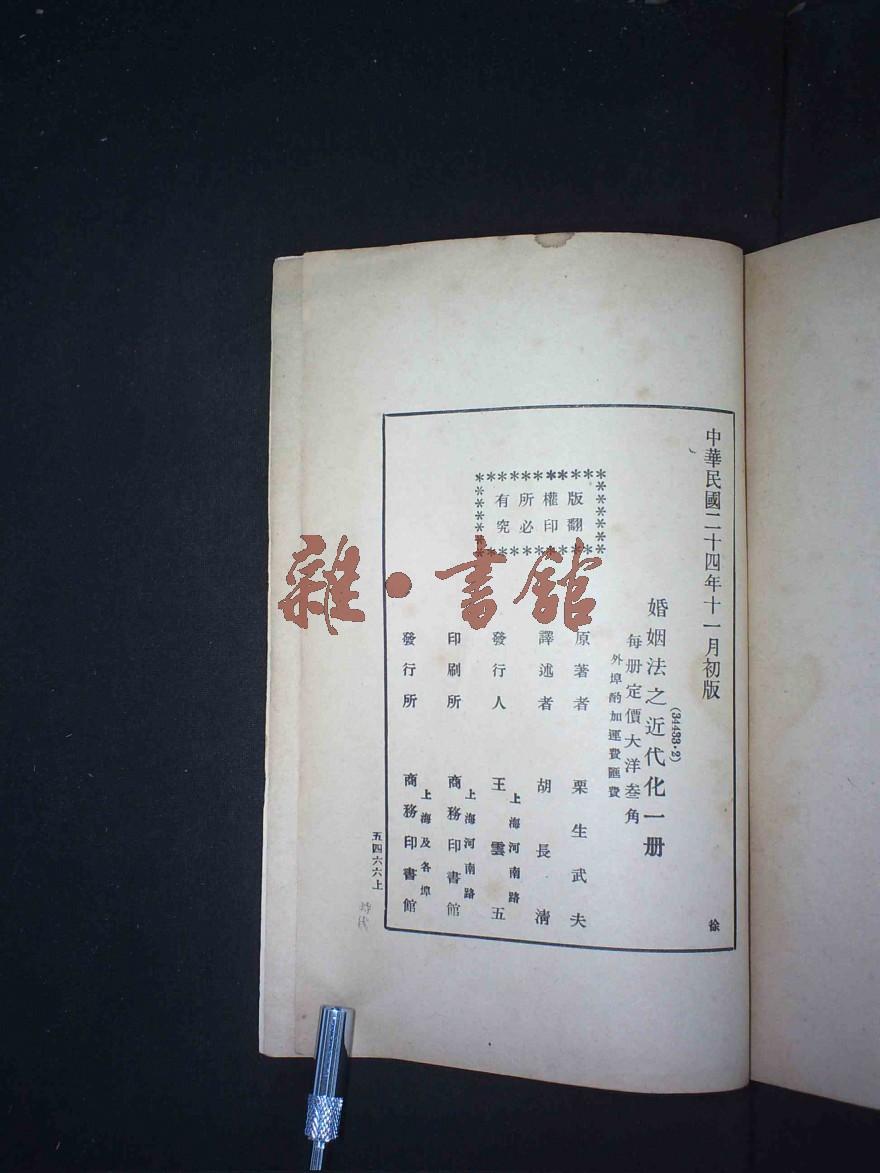 中華民國二十四年十一月初版
徐
(34433·2)
婚姻法之近代化一册
每册定價大洋叁角
外埠酌加運費匯費
版權所有
翻印必究
原著者 栗生武夫
譯述者 胡長清
發行人 王雲五
上海河南路
印刷所 商務印書館
上海河南路
發行所 商務印書館
上海及各埠
五四六六上
雜·書館